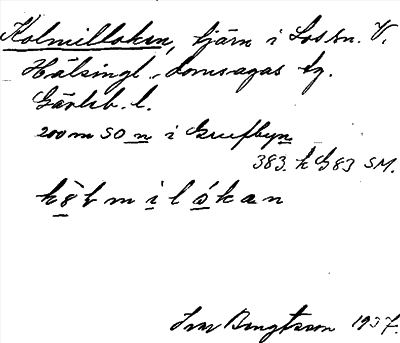 Kolmilloken, tjärn i Los sn. V.
Hälsingl. domsagas tg.
Gävleb. l.
200 m SO n i Grufbyn
383. k G83 SM.
kölmilókan
Ivar Bengtsson 1937.